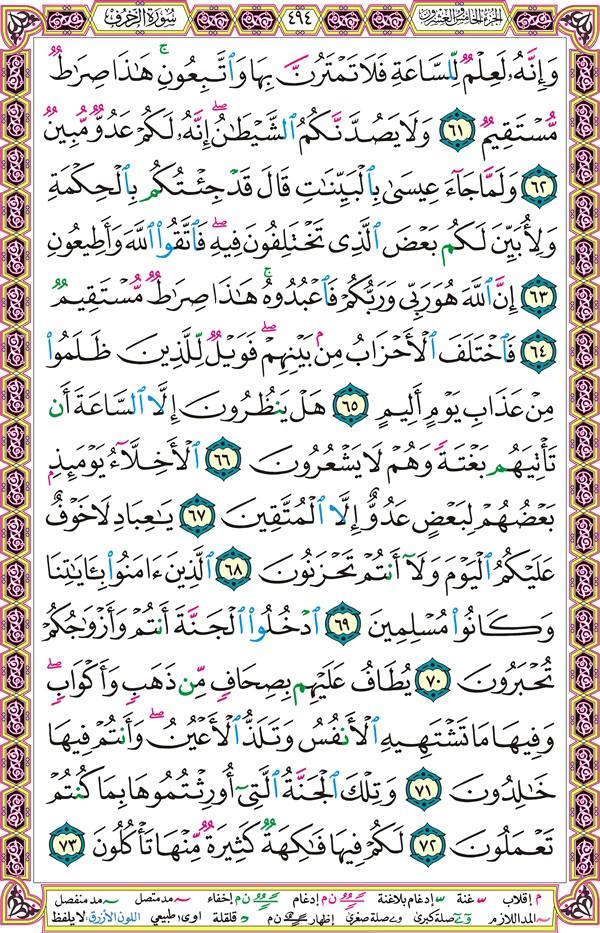 الجزء الخامس والعشرون ٤٩٤ سورة الزخرف
وَإِنَّهُۥ لَعِلْمٌ لِّلسَّاعَةِ فَلَا تَمْتَرُنَّ بِهَا وَٱتَّبِعُونِ ۚ هَٰذَا صِرَٰطٌ
مُّسْتَقِيمٌ ٦١ وَلَا يَصُدَّنَّكُمُ ٱلشَّيْطَٰنُ ۖ إِنَّهُۥ لَكُمْ عَدُوٌّ مُّبِينٌ
٦٢ وَلَمَّا جَآءَ عِيسَىٰ بِٱلْبَيِّنَٰتِ قَالَ قَدْ جِئْتُكُم بِٱلْحِكْمَةِ
وَلِأُبَيِّنَ لَكُم بَعْضَ ٱلَّذِى تَخْتَلِفُونَ فِيهِ ۖ فَٱتَّقُوا۟ ٱللَّهَ وَأَطِيعُونِ
٦٣ إِنَّ ٱللَّهَ هُوَ رَبِّى وَرَبُّكُمْ فَٱعْبُدُوهُ ۚ هَٰذَا صِرَٰطٌ مُّسْتَقِيمٌ
٦٤ فَٱخْتَلَفَ ٱلْأَحْزَابُ مِنۢ بَيْنِهِمْ ۖ فَوَيْلٌ لِّلَّذِينَ ظَلَمُوا۟
مِنْ عَذَابِ يَوْمٍ أَلِيمٍ ٦٥ هَلْ يَنظُرُونَ إِلَّا ٱلسَّاعَةَ أَن
تَأْتِيَهُم بَغْتَةً وَهُمْ لَا يَشْعُرُونَ ٦٦ ٱلْأَخِلَّآءُ يَوْمَئِذٍۭ
بَعْضُهُمْ لِبَعْضٍ عَدُوٌّ إِلَّا ٱلْمُتَّقِينَ ٦٧ يَٰعِبَادِ لَا خَوْفٌ
عَلَيْكُمُ ٱلْيَوْمَ وَلَآ أَنتُمْ تَحْزَنُونَ ٦٨ ٱلَّذِينَ ءَامَنُوا۟ بِـَٔايَٰتِنَا
وَكَانُوا۟ مُسْلِمِينَ ٦٩ ٱدْخُلُوا۟ ٱلْجَنَّةَ أَنتُمْ وَأَزْوَٰجُكُمْ
تُحْبَرُونَ ٧٠ يُطَافُ عَلَيْهِم بِصِحَافٍ مِّن ذَهَبٍ وَأَكْوَابٍ ۖ
وَفِيهَا مَا تَشْتَهِيهِ ٱلْأَنفُسُ وَتَلَذُّ ٱلْأَعْيُنُ ۖ وَأَنتُمْ فِيهَا
خَٰلِدُونَ ٧١ وَتِلْكَ ٱلْجَنَّةُ ٱلَّتِىٓ أُورِثْتُمُوهَا بِمَا كُنتُمْ
تَعْمَلُونَ ٧٢ لَكُمْ فِيهَا فَٰكِهَةٌ كَثِيرَةٌ مِّنْهَا تَأْكُلُونَ ٧٣
م إقلاب غنة إدغام بلاغنة ن م إدغام ن م إخفاء مد متصل مد منفصل
المد اللازم صلة كبرى صلة صغرى إظهار ن م قلقلة اوى طبيعي اللون الأزرق: لا يلفظ